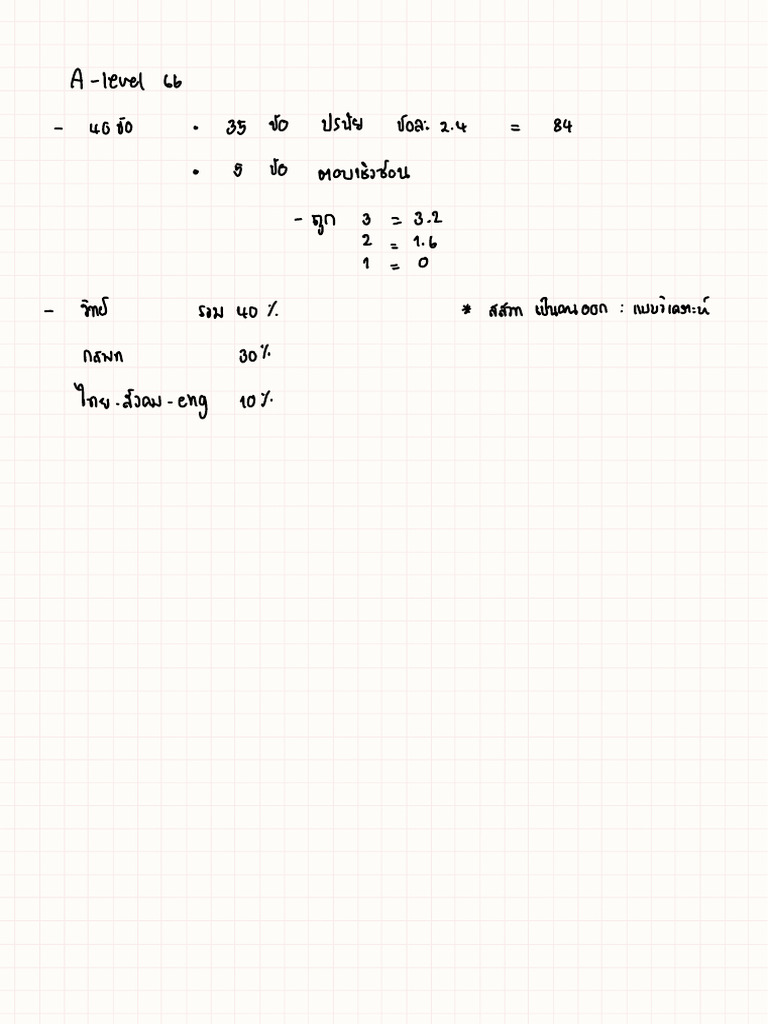 A-level 66
- 40 ข้อ • 35 ข้อ ปรนัย ข้อละ 2.4 = 84
• 5 ข้อ ตอบเชิงซ้อน
- ถูก 3 = 3.2
2 = 1.6
1 = 0
- วิทย์ รวม 40 % * สสวท เป็นคนออก : แบบวิเคราะห์
กสพท 30 %
ไทย - สังคม - eng 10 %